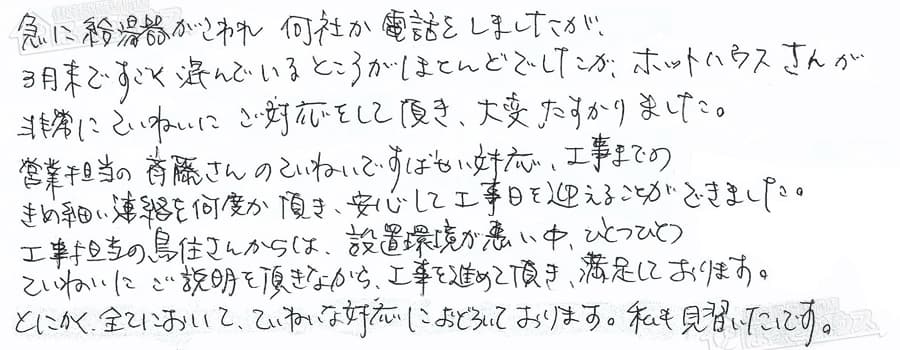 急に給湯器がこわれ 何社か電話をしましたが、
3月末ですごく混んでいるところがほとんどでしたが、ホットハウスさんが
非常にていねいにご対応をして頂き、大変たすかりました。
営業担当の斉藤さんのていねいですばやい対応、工事までの
きめ細い連絡を何度か頂き、安心して工事日を迎えることができました。
工事担当の鳥住さんからは、設置環境が悪い中、ひとつひとつ
ていねいにご説明を頂きながら、工事を進めて頂き、満足しております。
とにかく、全てにおいて、ていねいな対応におどろいております。私も見習いたいです。